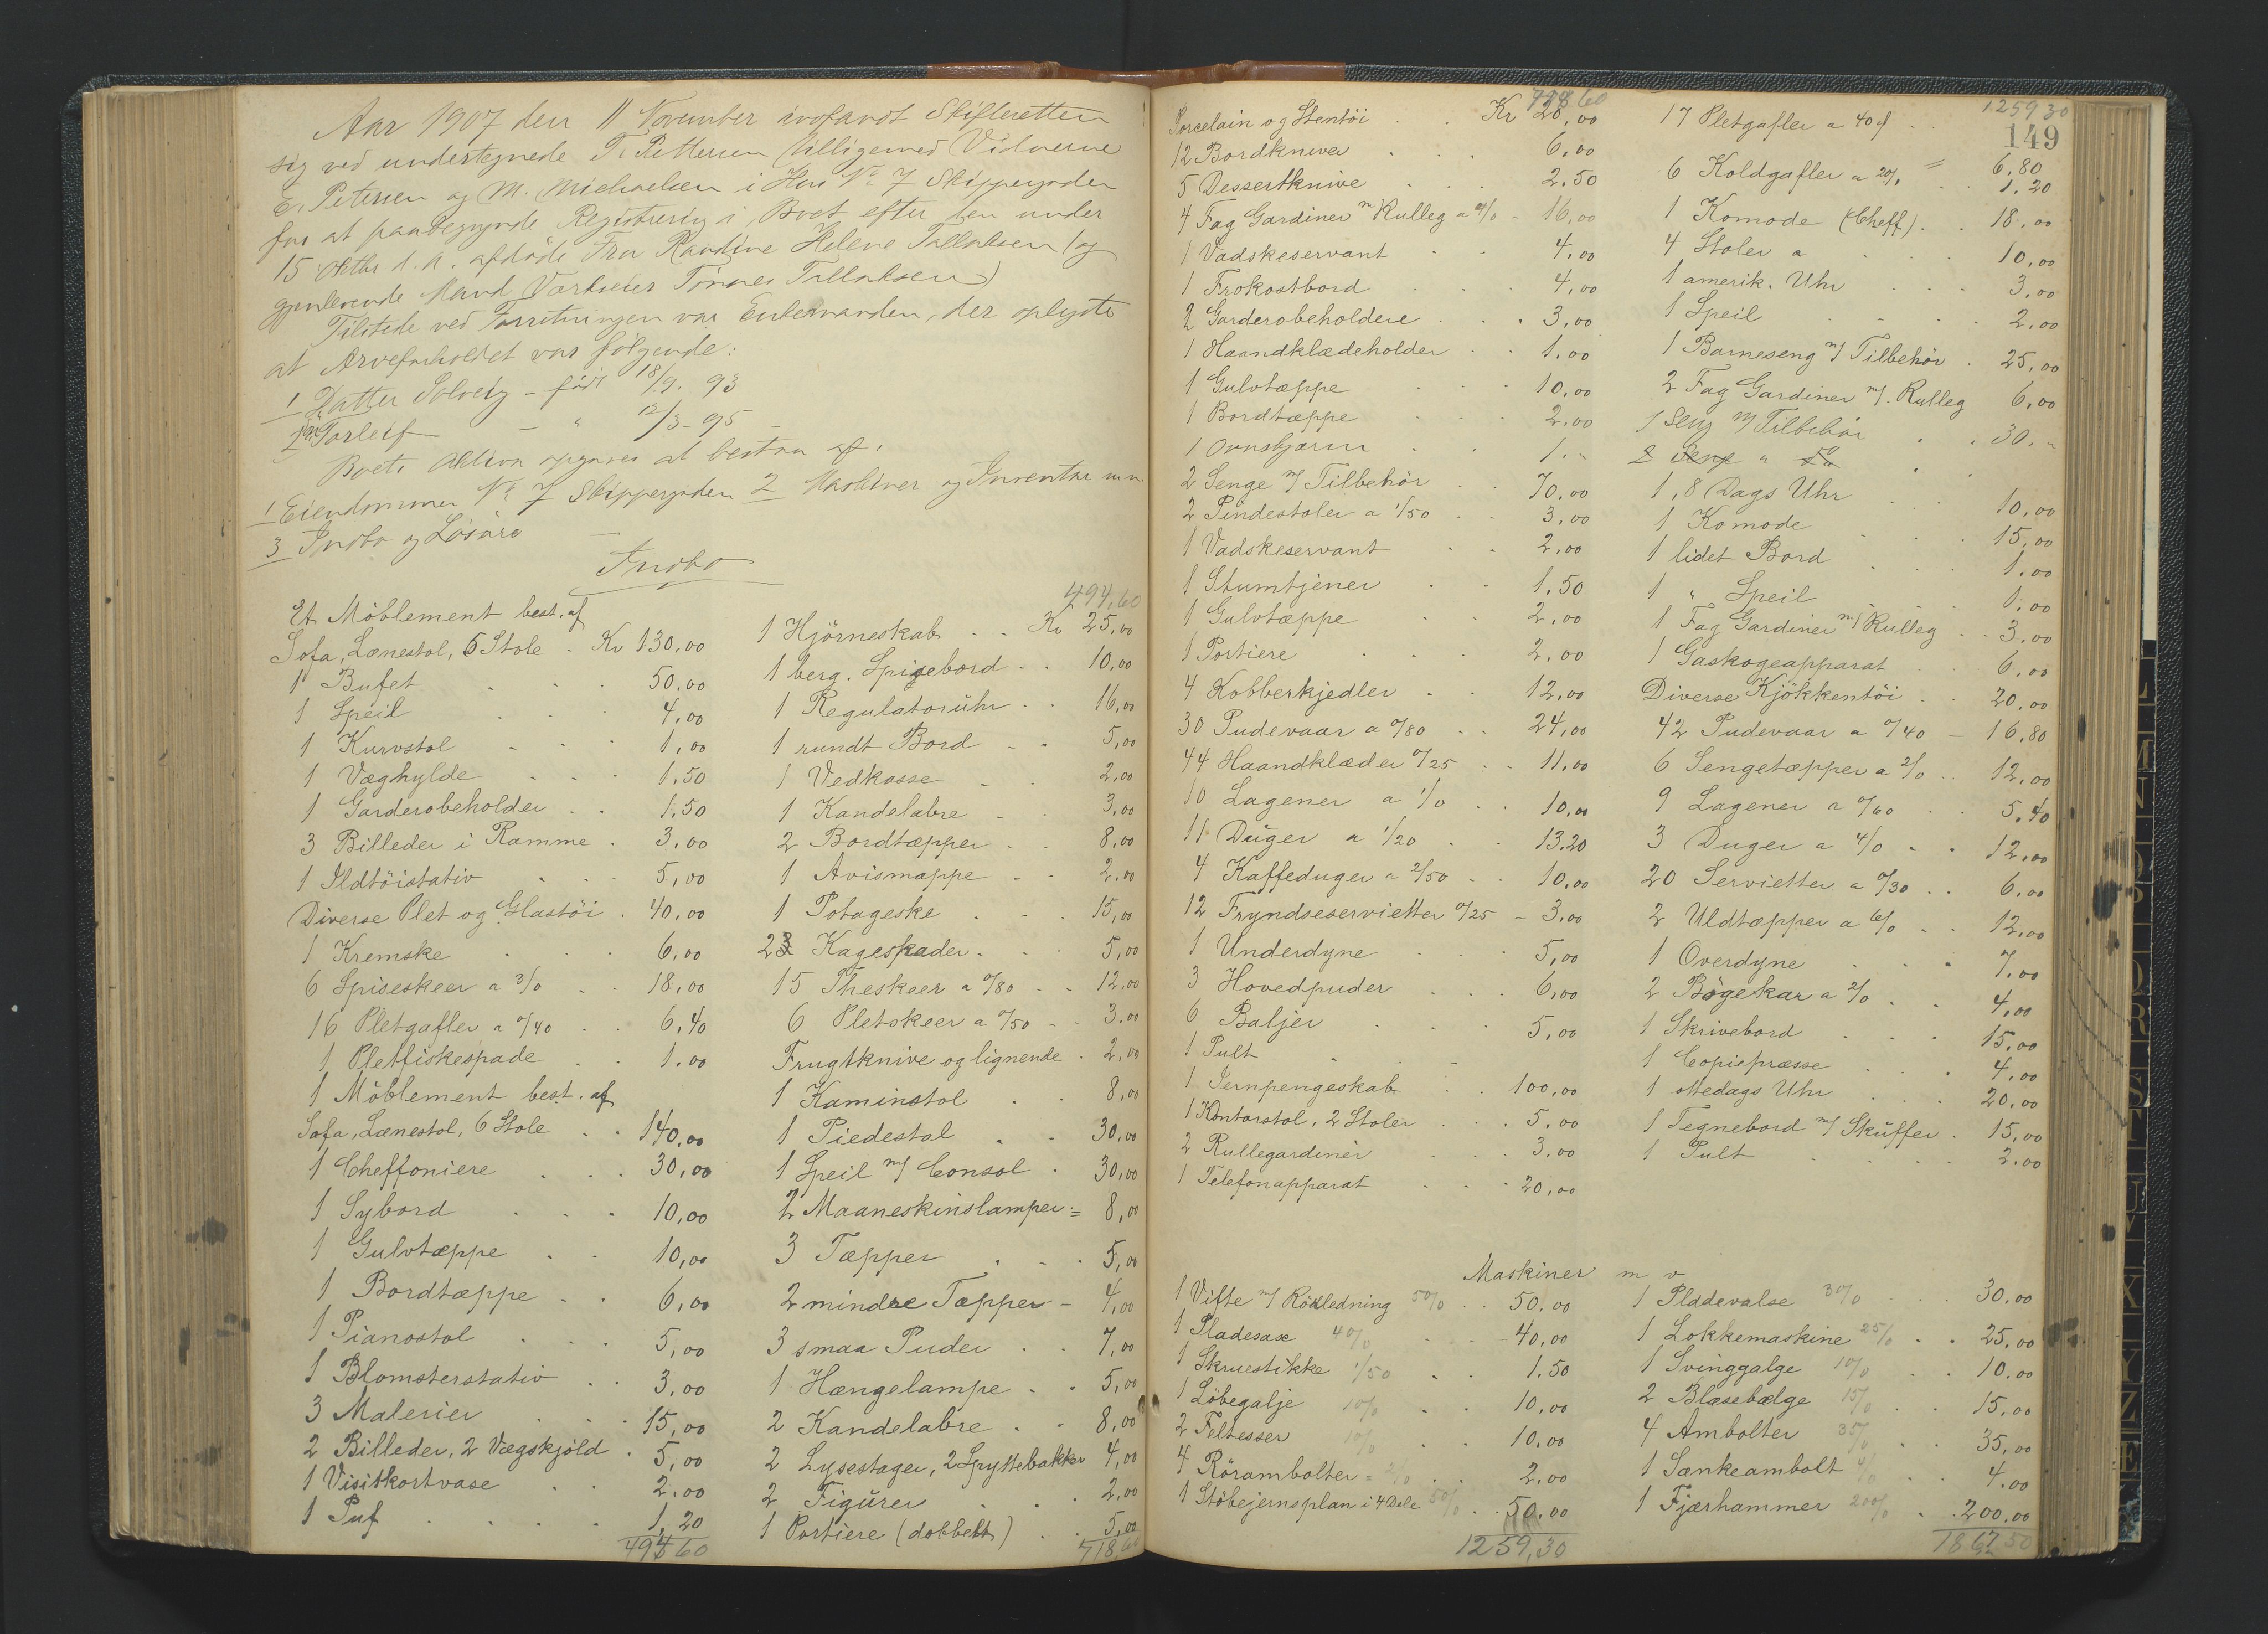 Aar 1907 den 11 November indfandt Skifteretten
sig ved undertegnede T. Pettersen tilligemed Vidnerne
E. Petersen og M. Michaelsen i Hus No 7 Skippergaden
for at paabegynde Registrering i Boet efter den under
15 Oktbr d. A. afdøde Fru Randine Helene Tallaksen (og
gjenlevende Mand Værkseier Tønnes Tallaksen)
Tilstede ved Forretningen var Enkemanden, der oplyste
at Arveforholdet var følgende:
1 Datter Solveig - født 18/9. 93
2 Torleif - " 12/3 - 95 -
Boets Aktiva opgaves at bestaa af:
1 Eiendommen No 7 Skippergaden 2 Maskiner og Inventar m.m.
3 Indbo og Løsøre
Indbo
Et Möblement best. af
Sofa, Lænestol, 6 Stole . Kr 130,00
1 Bufet 50.00
1 Speil 4,00
1 Kurvstol 1,00
1 Væghylde 1.50
1 Garderobeholder 1.50
3 Billeder i Ramme 3,00
1 Ildtöistativ 5,00
Diverse Plet og Glastöi 40,00
1 Kremske 6,00
6 Spiseskeer a 3/0 18,00
16 Pletgafler a 0/40 6,40
1 Pletfiskespade 1.00
1 Möblement best. af
Sofa, Lænestol, 6 Stole 140,00
1 Cheffoniere 30,00
1 Sybord 10,00
1 Gulvtæppe 10,00
1 Bordtæppe 6,00
1 Pianostol 5,00
1 Blomsterstativ 3,00
3 Malerier 15,00
2 Billeder, 2 Vægskjöld 5,00
1 Visitkortvase 2.00
1 Puf 1,20
494 60
494,60
1 Hjörneskab Kr 25,00
1 berg. Spisebord 10,00
1 Regulatorühr 16,00
1 rundt Bord 5,00
1 Vedkasse 2,00
1 Kandelabre 3,00
2 Bordtæpper 8,00
1 Avismappe 2,00
1 Potageske 15,00
2 Kagespader 5,00
15 Theskeer a 0/80 12,00
6 Pletskeer a 0/50 3.00
Frugtknive og lignende 2,00
1 Kaminstol 8,00
1 Piedestal 30,00
1 Speil m/ Consol 30,00
2 Maaneskinslamper = 8,00
3 Tæpper 5,00
2 mindre Tæpper - 4,00
3 smaa Puder 7,00
1 Hængelampe 5,00
2 Kandelabre 8,00
2 Lysestager, 2 Spyttebakker 4,00
2 Figürer 2,00
1 Portiere (dobbelt) 5,00
718,60
718 60
Porcelain og Stentöi Kr 20,00
12 Bordkniver 6,00
5 Dessertknive 2.50
4 Fag Gardiner m/ Rulleg a 4/0 - 16,00
1 Vadskeservant 4,00
1 Frokostbord 4,00
2 Garderobeholdere 3,00
1 Haandklædeholder 1,00
1 Gulvtæppe 10,00
1 Bordtæppe 2,00
1 Ovnskjærm 1.-
2 Senge m/ Tilbehör 70,00
2 Pindestoler a 1/50 3,00
1 Vadskeservant 2,00
1 Stumtjener 1,50
1 Gulvtæppe 2,00
1 Portiere 2,00
4 Kobberkjedler 12,00
30 Pudevaar a 0/80 24,00
44 Haandklæder 0/25 11,00
10 Lagener a 1/0 10,00
11 Düger a 1/20 13.20
4 Kaffeduger a 2/50 10,00
12 Fryndseservietter 0/25 - 3,00
1 Underdyne 5,00
3 Hovedpuder 6,00
6 Baljer 5,00
1 Pult
1 Jernpengeskab 100,00
1 Kontorstol, 2 Stoler 5,00
2 Rullegardiner 3,00
1 Telefonapparat 20,00
1259 30
149
17 Pletgafler a 40 = 6,80
6 Koldgafler a 20 1.20
1 Komode (Cheff.) 18,00
4 Stoler a 10,00
1 amerik. Uhr 3,00
1 Speil 2,00
1 Barneseng m/ Tilbehör 25,00
2 Fag Gardiner m/. Rulleg 6,00
1 Seng m/ Tilbehör 30.-
2 Seng "
1, 8 Dags Uhr 10,00
1 Komode 15,00
1 lidet Bord 1,00
1 " Speil 1,00
1 Fag Gardiner m/ Rulleg 3,00
1 Gaskogeapparat 6,00
Diverse Kjökkentöi 20,00
42 Pudevaar a 0/40 - 16,80
6 Sengetæpper a 2/0 12,00
9 Lagener a 0/60 5,40
3 Duger a 4/0 12,00
20 Servietter a 0/30 6,00
2 Uldtæpper a 6/0 12,00
1 Overdyne 7,00
2 Bøgekar a 2/0 4,00
1 Skrivebord 15,00
1 Copiepræsse 4,00
1 ottedags Uhr 20,00
1 Tegnebord m/ Sküffer 15,00
1 Pult 2.00
Maskiner m v
1 Vifte m/ Rörledning 50/0 50,00
1 Pladesax 40/0 40,00
1 Skruestikke 1/50 1.50
1 Löbegalje 10/0 10,00
2 Feltesser 10/0 10.00
4 Rörambolter = 2/0 2.00
1 Stöbejernsplan i 4 Dele 50/0 50.00
1259,30
1 Pladevalse 30/0 30.00
1 Lokkemaskine 25/0 25,00
1 Svinggalge 10/0 10.00
2 Blæsebælge 15/0 15,00
4 Ambolter 35/0 35,00
1 Sænkeambolt 4/0 4.00
1 Fjærhammer 200/0 200,00
1867 50